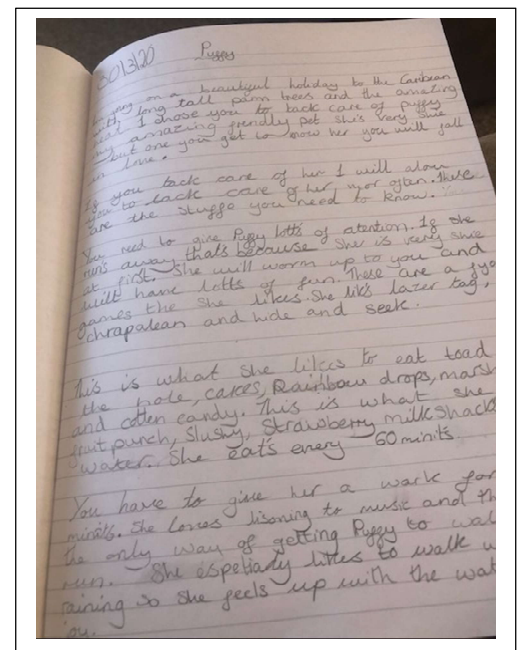 30/3/20
Puggy
going on a beautiful holiday to the Caribean
with long tall parm trees and the amazing
I chose you to tack care of puggy
my amazing frendly pet she's very shie
but one you get to know her you will fall
in love.
If you tack care of her I will alow
you to tack care of her mor ofton. These
are the stuffs you need to know.
You need to give Puggy lotts of atention. If she
run's away, that's because she is very shie
at first. She will worm up to you and
will have lotts of fun. These are a few
games the she likes. She lik's lazer tag,
chrapalean and hide and seek.
This is what she likes to eat toad
the hole, cakes, Rainbow drops, marsh
and cotten candy. This is what she
fruit punch, Slushy, Strawberry milkshack
water. She eat's every 60 minits.
You have to give her a walk for
minits. She loves lisoning to music and th
the only way of getting Puggy to wal
run. She espetialy likes to walk w
raining so she feels up with the wat
joy.